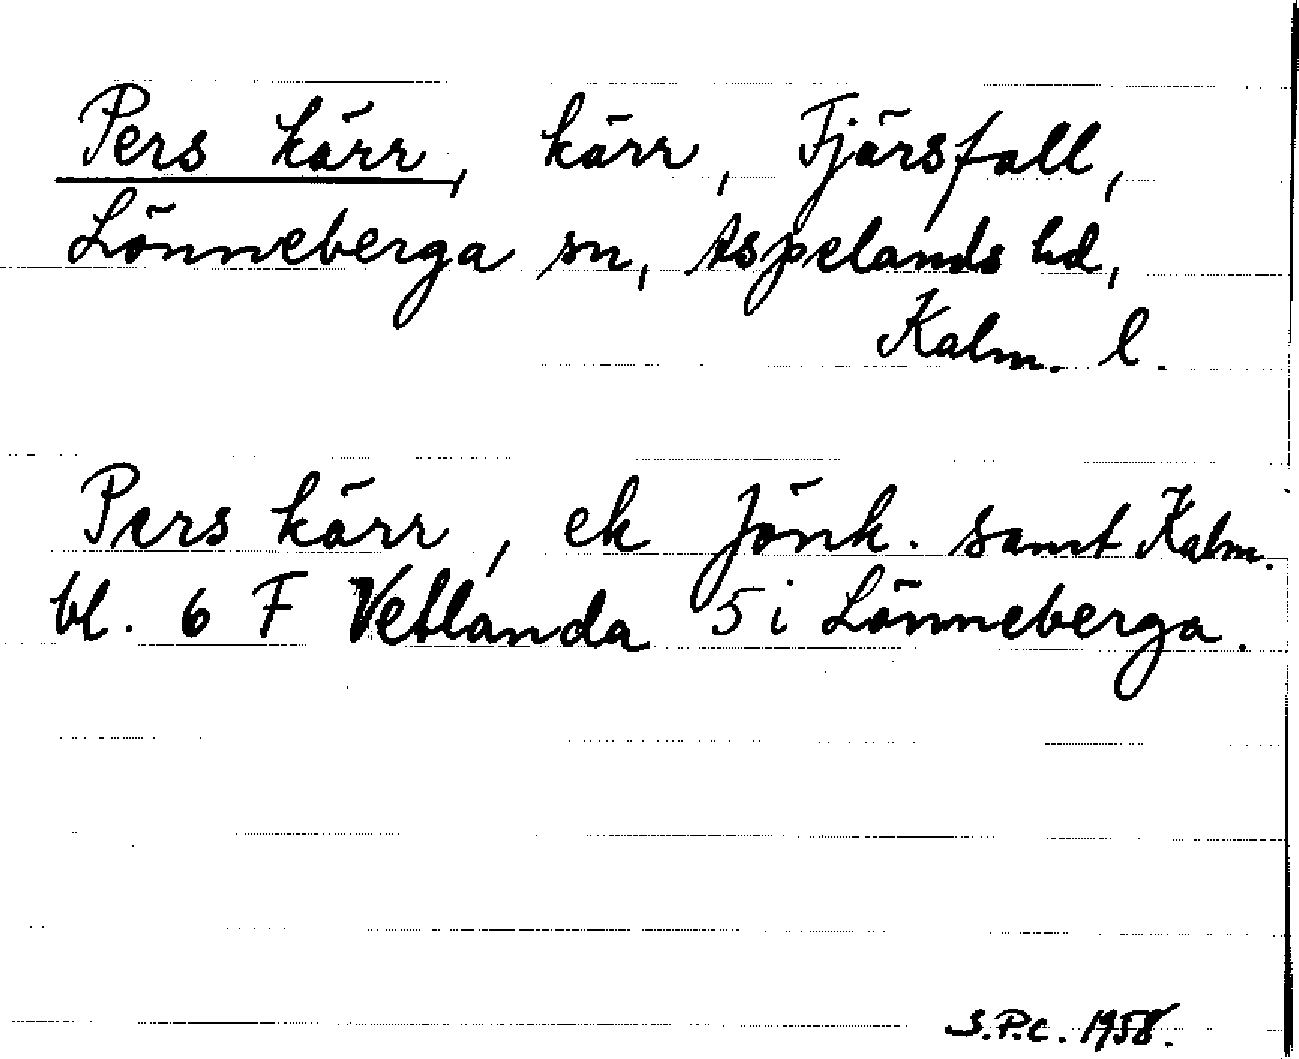 Pers kärr, kärr, Fjärsfall,
Lönneberga sn, Aspelands hd,
Kalm. l.
Pers kärr, ek Jönk. samt Kalm.
bl. 6 F Vetlanda 5 i Lönneberga.
S.P.C. 1958.